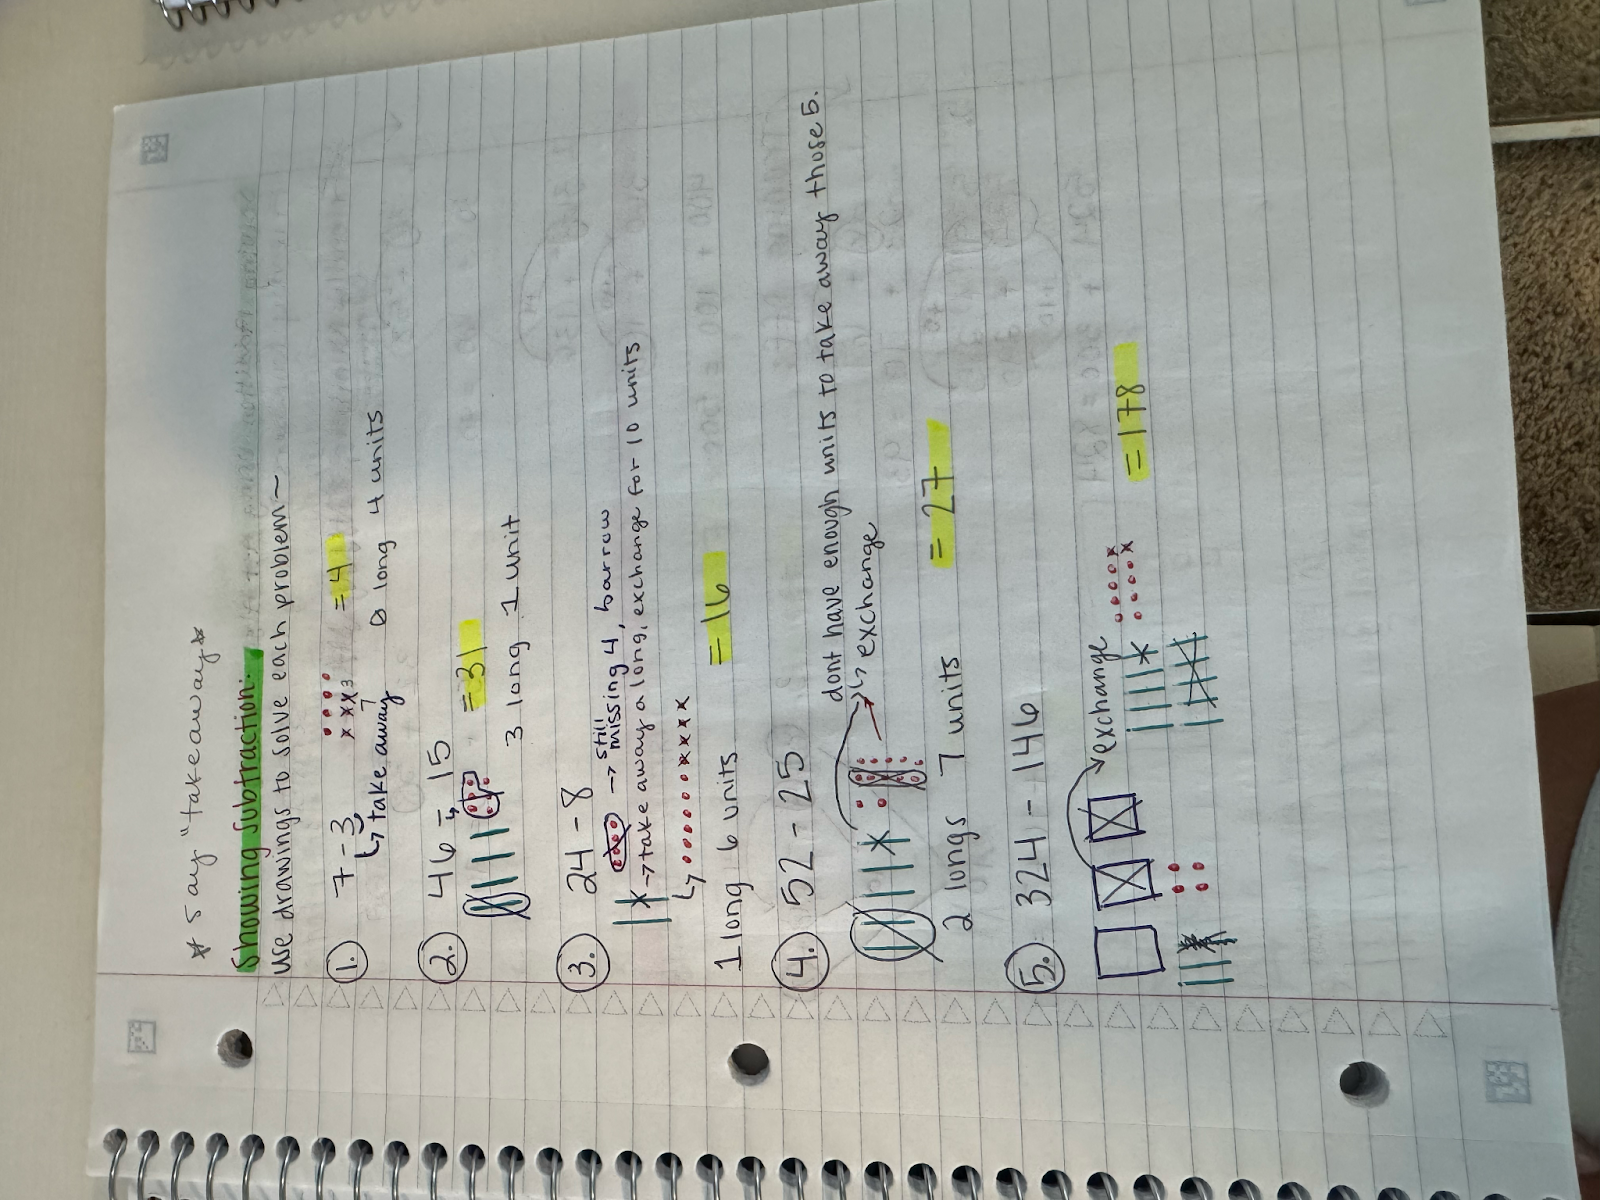 * say "takeaway*
Showing subtraction:
use drawings to solve each problem~
1. 7-3 = 4
↳ take away 0 long 4 units
2. 46 - 15
= 31
3 long 1 unit
3. 24 - 8
→ still missing 4, borrow
→ take away a long, exchange for 10 units
↳
1 long 6 units = 16
4. 52 - 25
dont have enough units to take away those 5.
↳ exchange
2 longs 7 units = 27
5. 324 - 146
exchange
= 178